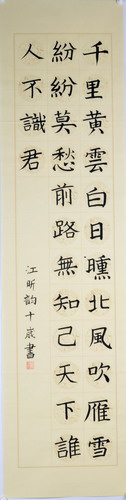 千里黃雲白日曛北風吹雁雪
紛紛莫愁前路無知己天下誰
人不識君
江昕韵十歲書